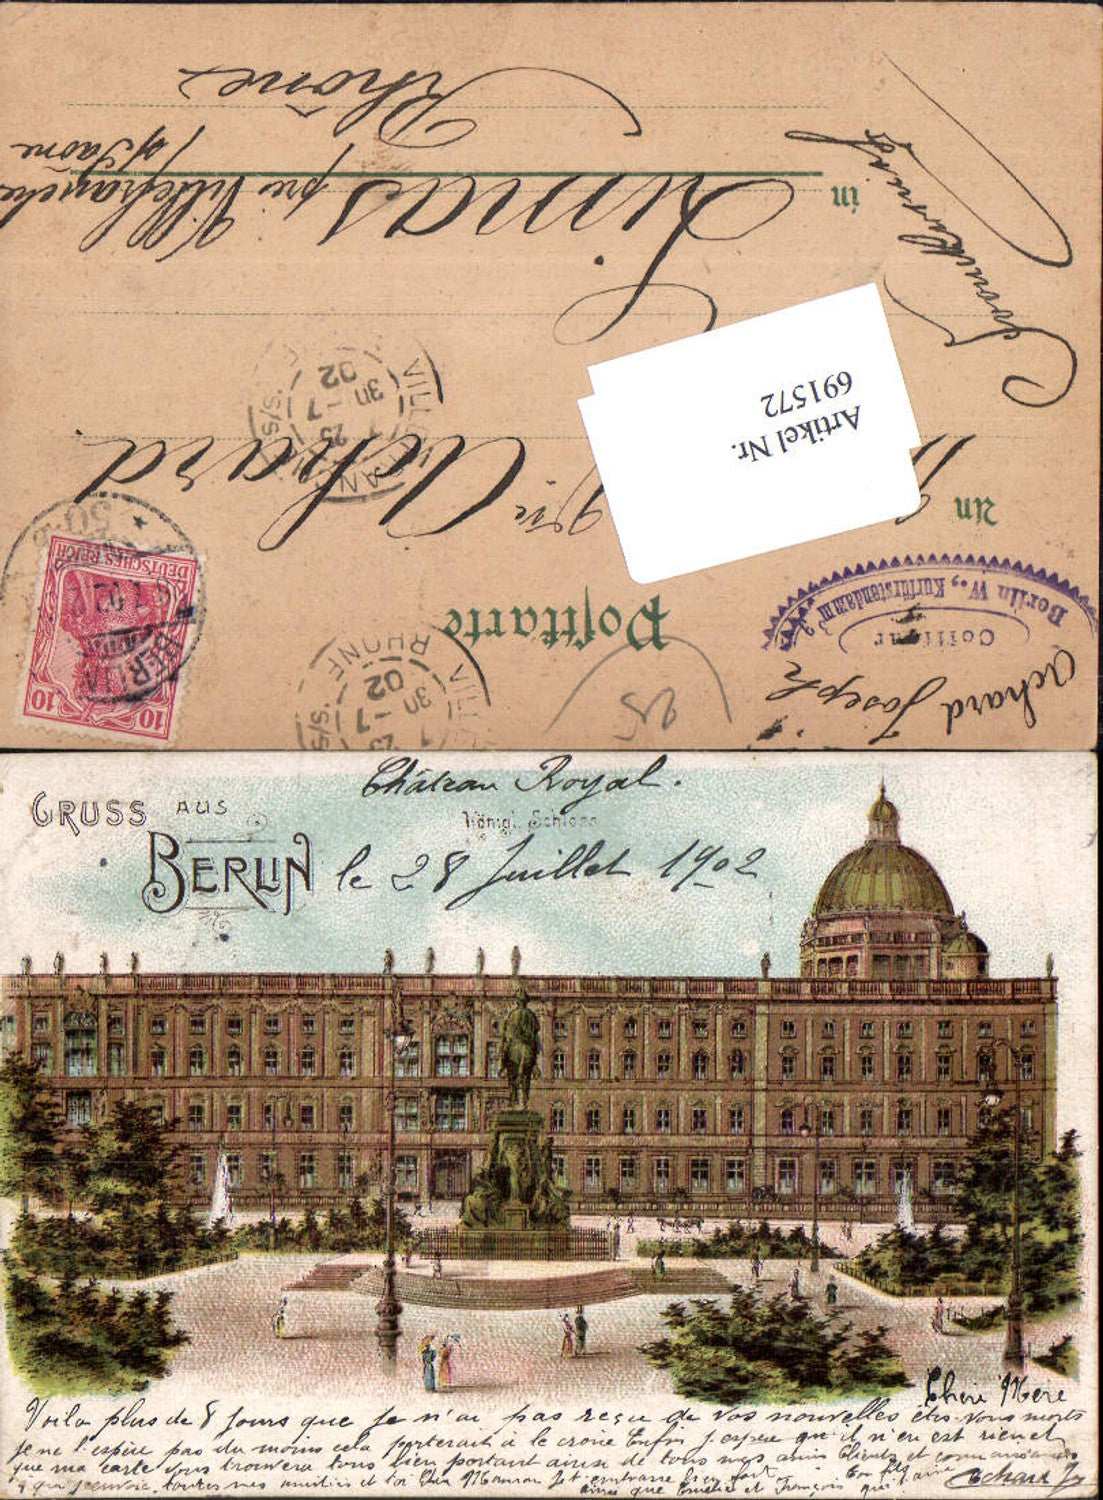 Postkarte
An
M Vve Achard
Limas
in
près Villefranche
s/ Saône
Rhône
Frankreich
Achard Joseph
Coiffeur
Berlin W., Kurfürstendamm
25
DEUTSCHES REICH
10 10
BERLIN
50
VILLEFRANCHE S/S
RHONE
29 -7
02
Artikel Nr.
691572
Château Royal.
GRUSS AUS
BERLIN
Königl. Schloss
le 28 Juillet 1902
Chère Mère
Voila plus de 8 Jours que Je n'ai pas reçu de vos nouvelles êtes-vous morts
je ne l'espère pas du moins cela porterait à le croire Enfin j'espère qu'il n'en est rien et
que ma carte vous trouvera tous bien portant ainsi de tous mes amis Clients et
toutes mes amitiés et ton fils
ainsi que Emélie et François qui
Achard J